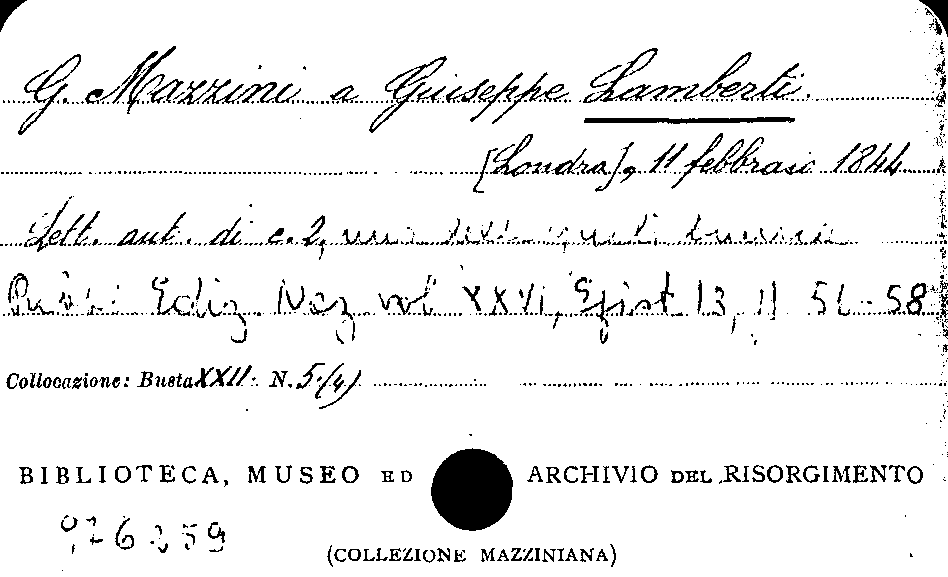 G. Mazzini a Giuseppe Lamberti.
[Londra], 11 febbraio 1844
Lett. aut. di c. 2, una delle quali bianca
Ediz. Naz. vol XXVI, Epist 13, 58
Collocazione: Busta XXII. N. 5.(4)
BIBLIOTECA, MUSEO ED ARCHIVIO DEL RISORGIMENTO
(COLLEZIONE MAZZINIANA)